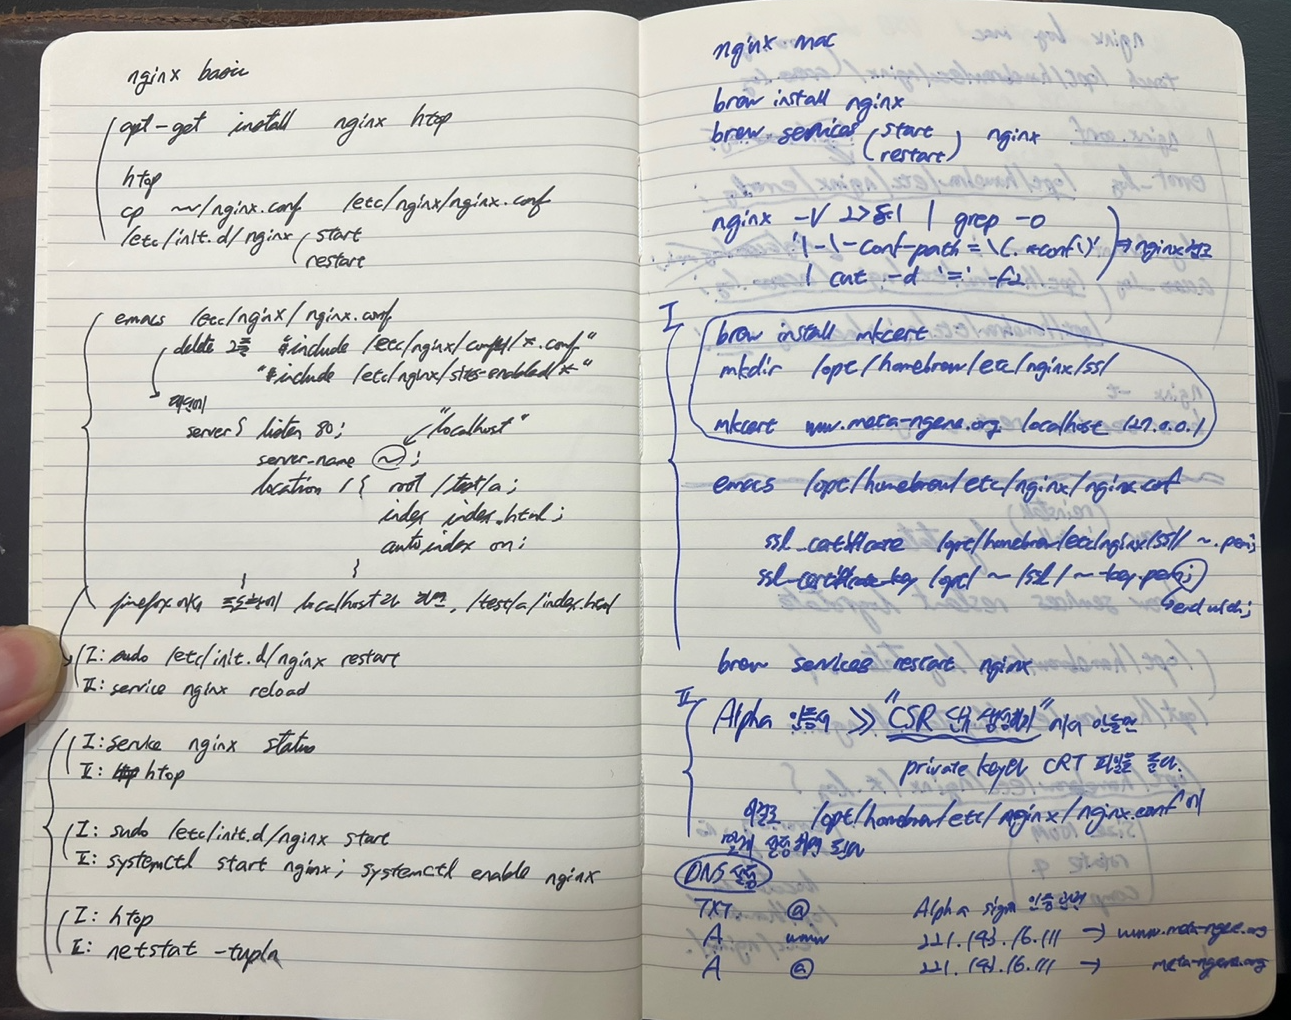 nginx basic
apt-get install nginx htop
htop
cp ~/nginx.conf /etc/nginx/nginx.conf
/etc/init.d/nginx (start
restart
emacs /etc/nginx/nginx.conf
delete 2줄 "#include /etc/nginx/conf.d/*.conf"
"#include /etc/nginx/sites-enabled/*"
server { listen 80; "localhost"
server_name ~;
location / { root /test/a;
index index.html;
autoindex on;
}
}
firefox 에서 주소창에 localhost 라 치면, /test/a/index.html
I: sudo /etc/init.d/nginx restart
II: service nginx reload
I: service nginx status
II: htop
I: sudo /etc/init.d/nginx start
II: systemctl start nginx; systemctl enable nginx
I: htop
II: netstat -tupln
nginx mac
brew install nginx
brew services (start nginx
restart)
nginx -V 2>&1 | grep -o
'\-\-conf-path=\(.*conf\)' ⇒ nginx 경로
| cut -d '=' -f2
I
brew install mkcert
mkdir /opt/homebrew/etc/nginx/ssl
mkcert www.meta-ngene.org localhost 127.0.0.1
emacs /opt/homebrew/etc/nginx/nginx.conf
ssl_certificate /opt/homebrew/etc/nginx/ssl/~.pem;
ssl_certificate_key /opt/~/ssl/~-key.pem;
end with ;
brew services restart nginx
II
Alpha 인증서 >> "CSR 생성하기" 에서 만들면
private key와 CRT 파일을 준다.
이걸로 /opt/homebrew/etc/nginx/nginx.conf에
DNS 설정
TXT @ Alpha sign 인증
A www 221.193.16.111 → www.meta-ngene.org
A @ 221.193.16.111 → meta-ngene.org